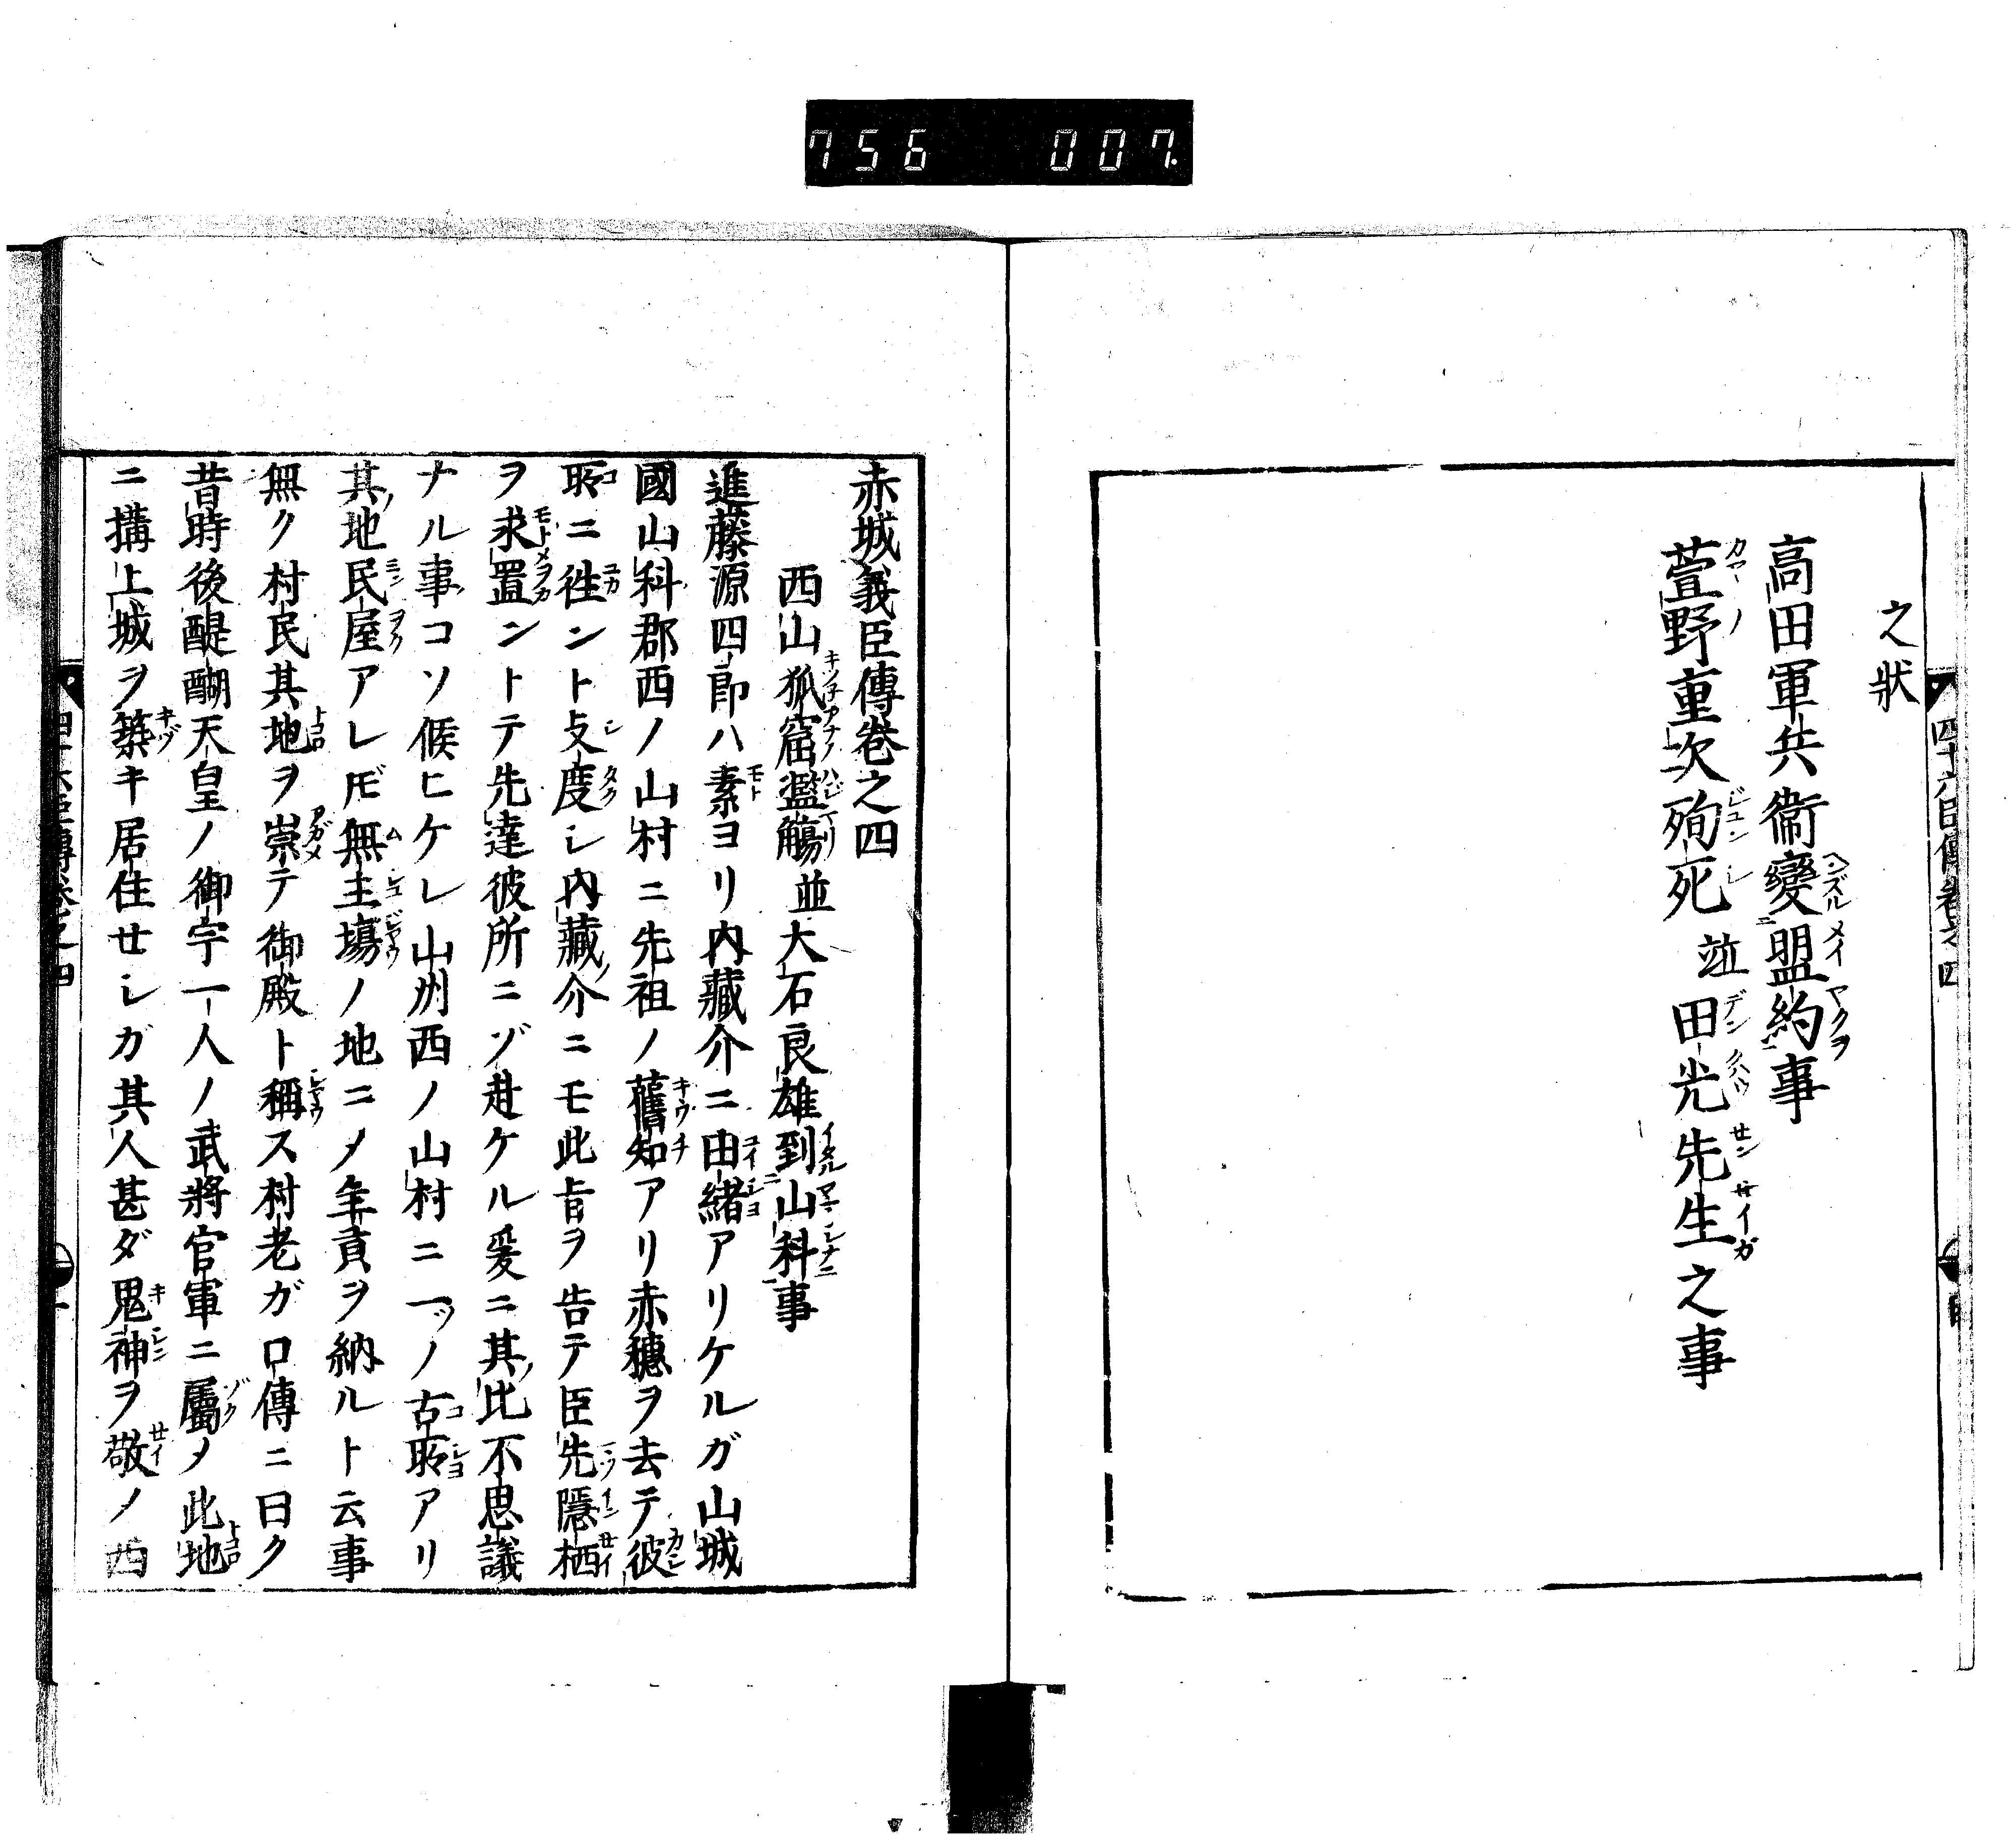 756 007
之狀
高田軍兵衞變盟約事
萱野重次殉死並田光先生之事
赤城義臣傳卷之四
西山狐窟濫觴並大石良雄到山科事
進藤源四郎ハ素ヨリ内藏介ニ由緒アリケルガ山城
國山科郡西ノ山村ニ先祖ノ舊知アリ赤穗ヲ去テ彼
所ニ徃ント支度シ内藏介ニモ此旨ヲ告テ臣先隱栖
ヲ求置ントテ先達彼所ニゾ赴ケル爰ニ其比不思議
ナル事コソ候ヒケレ山州西ノ山村ニ一ツノ古所アリ
其地民屋アレ𪜈無主塲ノ地ニメ年貢ヲ納ルト云事
無ク村民其地ヲ崇テ御殿ト稱ス村老ガ口傳ニ曰ク
昔時後醍醐天皇ノ御宇一人ノ武將官軍ニ屬メ此地
ニ搆上城ヲ築キ居住セシガ其人甚ダ鬼神ヲ敬ノ西